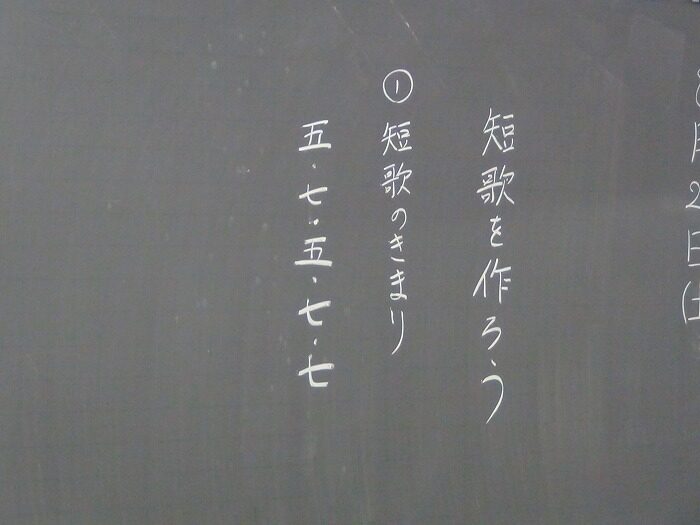 月2日(土
短歌を作ろう
①短歌のきまり
五・七・五・七・七